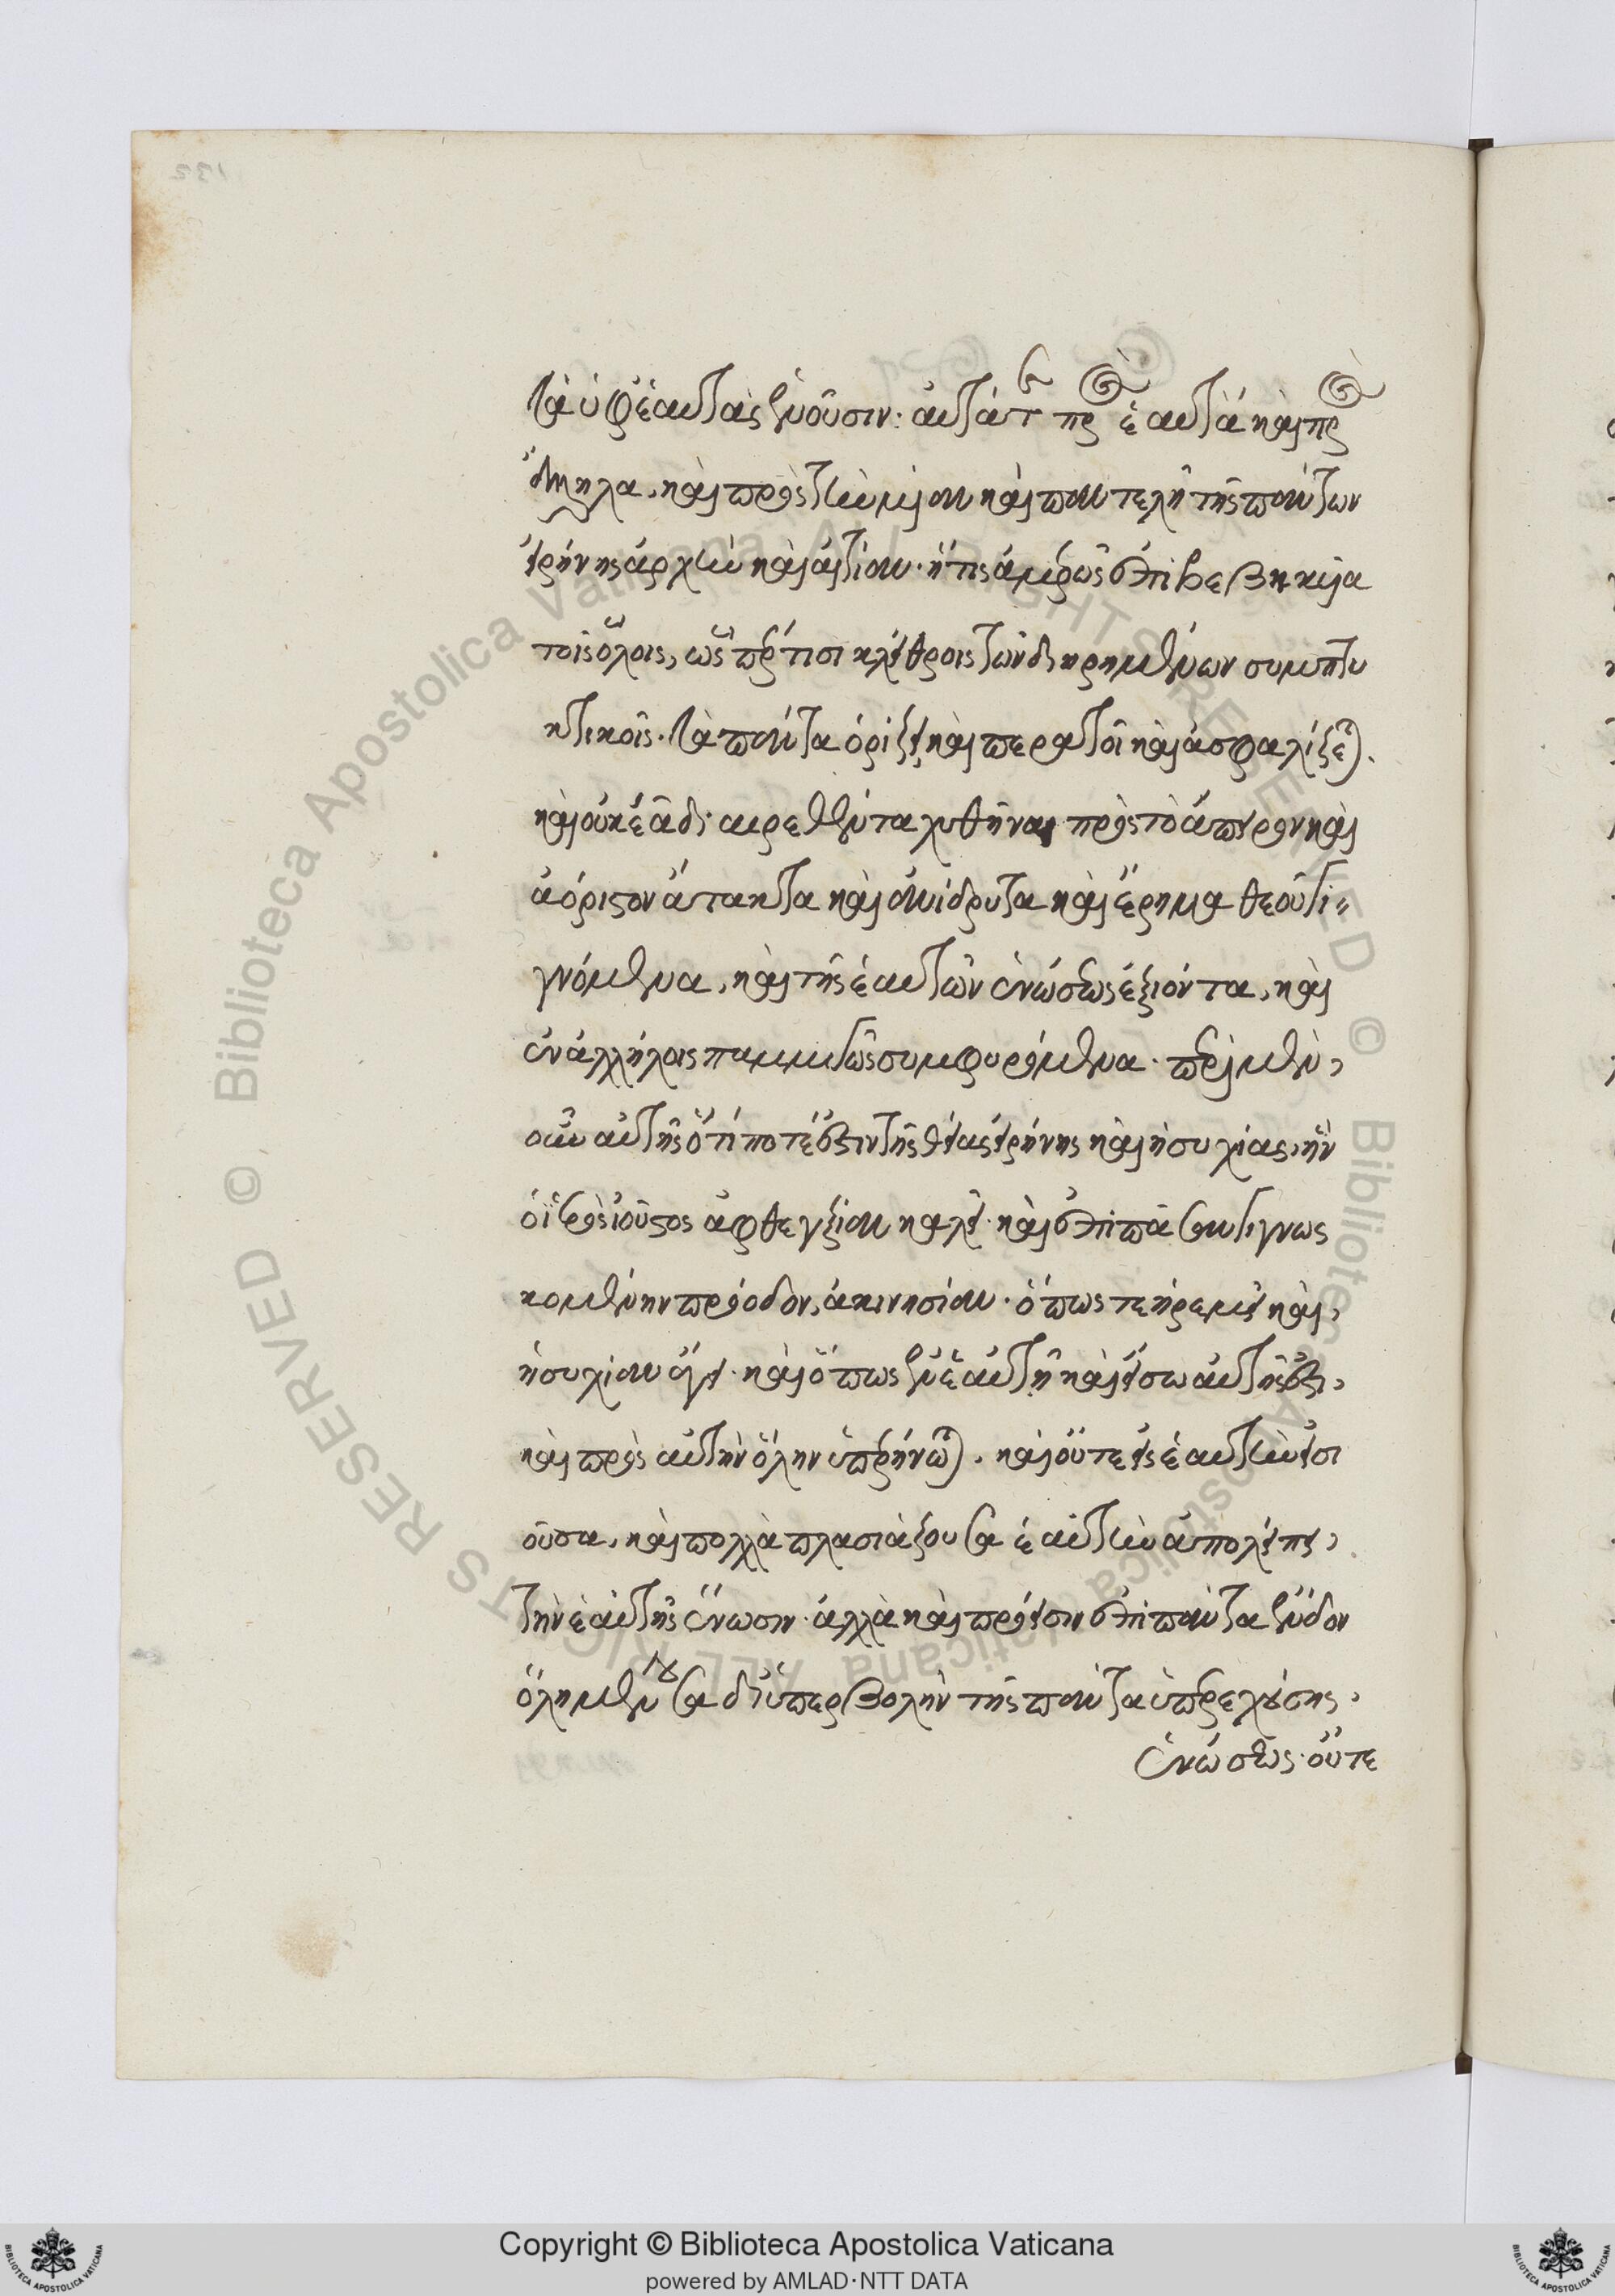 τὰ ὑφ' ἑαυτὰς ἑνοῦσιν· αὐτά τε πρὸς ἑαυτὰ καὶ πρὸς
ἄλληλα, καὶ πρὸς τὴν μίαν καὶ παντελῆ τῆς πάντων
εἰρήνης ἀρχὴν καὶ αἰτίαν· ἥτις ἀμερῶς ἐπιβεβηκυῖα
τοῖς ὅλοις, ὥσπερ τισι κλείθροις τῶν διῃρημένων συμπτυ
κτικοῖς· τὰ πάντα ὁρίζει καὶ περατοῖ καὶ ἀσφαλίζεται.
καὶ οὐκ ἐᾷ διαιρεθέντα χυθῆναι πρὸς τὸ ἄπειρον καὶ
ἀόριστον ἄτακτα καὶ ἀνίδρυτα καὶ ἔρημα θεοῦ γι=
γνόμενα, καὶ τῆς ἑαυτῶν ἑνώσεως ἐξιόντα, καὶ
ἐν ἀλλήλοις παμμιγῶς συμφυρόμενα· περὶ μὲν,
οὖν αὐτῆς ὅ τί ποτέ ἐστιν τῆς θείας εἰρήνης καὶ ἡσυχίας, ἣν
ὁ ἱερὸς ἰοῦστος ἀφθεγξίαν καλεῖ· καὶ ἐπὶ πᾶσαν γιγνωσ
κομένην πρόοδον, ἀκινησίαν· ὅπως τε ἠρεμεῖ καὶ,
ἡσυχίαν ἄγει· καὶ ὅπως ἐν ἑαυτῇ καὶ εἴσω αὐτῆς ἐστι,
καὶ πρὸς αὐτὴν ὅλην ὑπερήνωται. καὶ οὔτε εἰς ἑαυτὴν εἰσι
οῦσα, καὶ πολλὰ πλασιάζουσα ἑαυτὴν ἀπολείπει,
τὴν ἑαυτῆς ἕνωσιν· ἀλλὰ καὶ πρόεισιν ἐπὶ πάντα ἔνδον
ὅλη μένουσα δι' ὑπερβολὴν τῆς πάντα ὑπερεχούσης,
ἑνώσεως· οὔτε
Copyright © Biblioteca Apostolica Vaticana
powered by AMLAD·NTT DATA